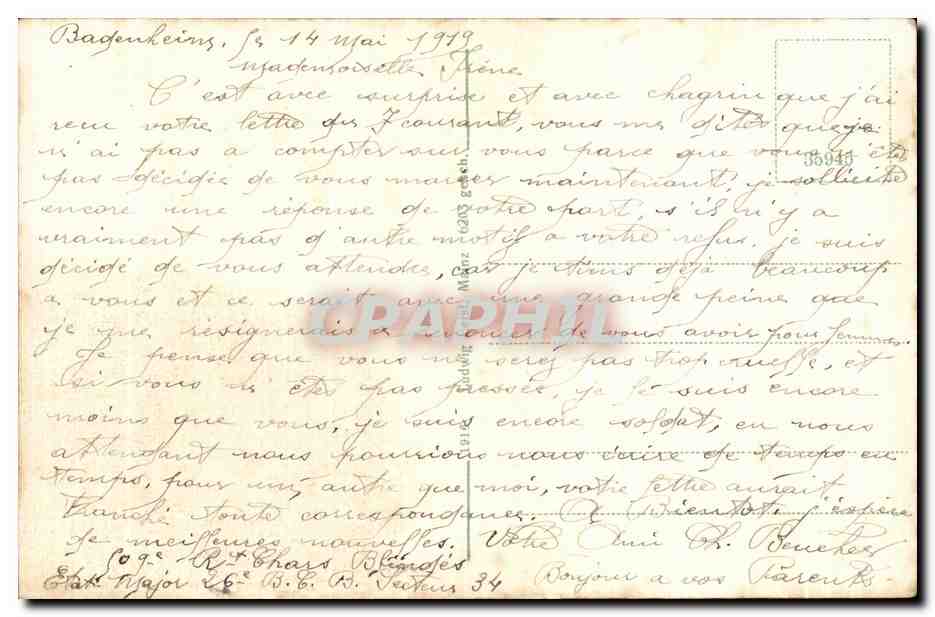 Badenheim, le 14 Mai 1919
Mademoiselle Irène
C'est avec surprise et avec chagrin que j'ai
recu votre lettre du 7 courant, vous me dites que je
n'ai pas a compter sur vous parce que vous n'êtes
pas décidée de vous marier maintenant, je sollicite
encore une réponse de votre part, s'il n'y a
vraiment pas d'autre motif a votre refus. je suis
décidé de vous attendre, car je tiens déjà beaucoup
a vous et ce serait avec une grande peine que
je me résignerais a renoncer de vous avoir pour femme.
Je pense que vous ne serez pas trop cruelle, et
si vous n'êtes pas pressée, je le suis encore
moins que vous, je suis encore soldat, en nous
attendant nous pourrions nous écrire de temps en
temps, pour un autre que moi, votre lettre aurait
tranché toute correspondance. A Bientot, j'espère
de meilleures nouvelles. Votre Ami Ch. Beucher
509e Rt Chars Blindés
Etat Major 26e B.C.B. Secteur 34 Bonjour a vos Parents
35945
Ludwig Feist, Mainz 6203 gesch.
CPAPHIL